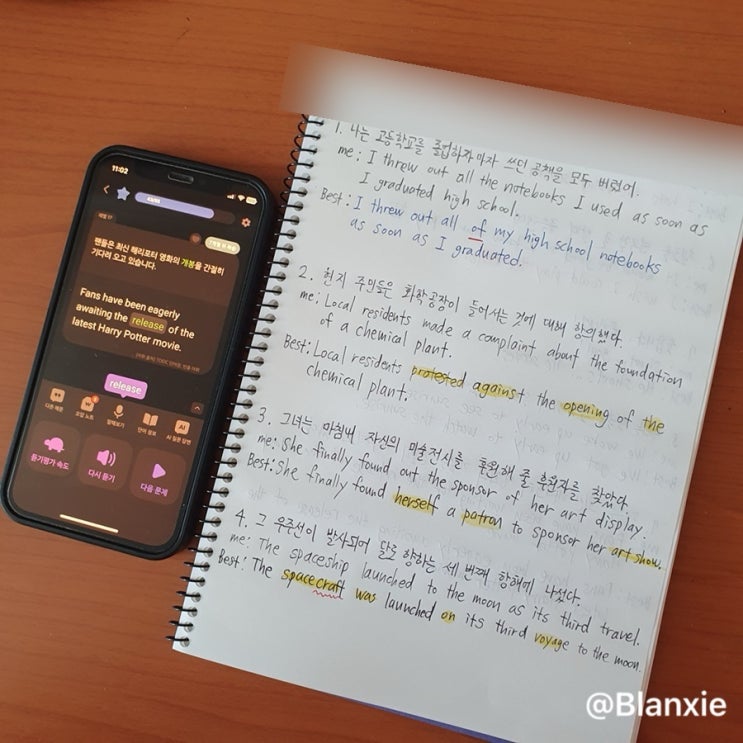 11:02
팬들은 최신 해리포터 영화의 개봉을 간절히
기다려 오고 있습니다.
Fans have been eagerly
awaiting the release of the
latest Harry Potter movie.
release
다른 예문
오답 노트
말해보기
단어 정보
AI 질문 답변
듣기평가 속도
다시 듣기
다음 문제
1. 나는 고등학교를 졸업하자마자 쓰던 공책을 모두 버렸어.
me: I threw out all the notebooks I used as soon as
I graduated high school.
Best: I threw out all of my high school notebooks
as soon as I graduated.
2. 현지 주민들은 화학공장이 들어서는 것에 대해 항의했다.
me: Local residents made a complaint about the foundation
of a chemical plant.
Best: Local residents protested against the opening of the
chemical plant.
3. 그녀는 마침내 자신의 미술전시를 후원해 줄 후원자를 찾았다.
me: She finally found out the sponsor of her art display.
Best: She finally found herself a patron to sponsor her art show.
4. 그 우주선이 발사되어 달로 향하는 세 번째 항해에 나섰다.
me: The spaceship launched to the moon as its third travel.
Best: The spacecraft was launched on its third voyage to the moon.
@Blanxie